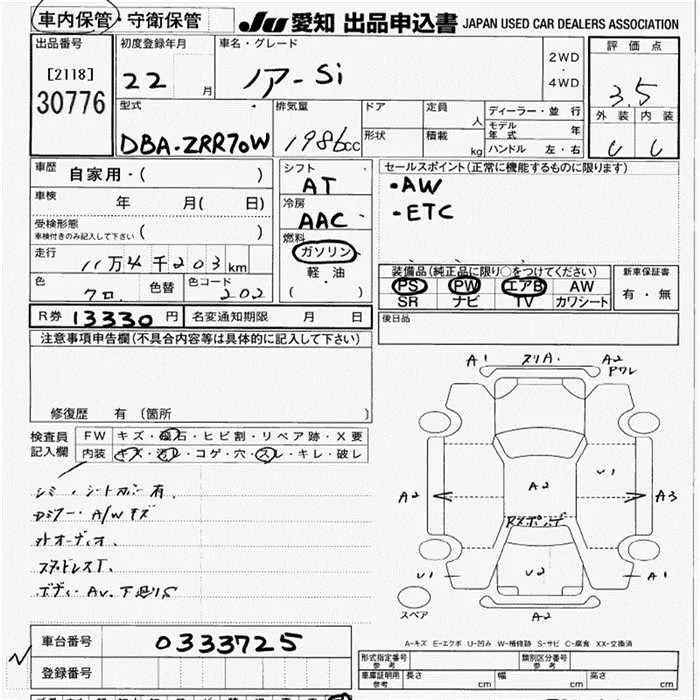 車内保管・守衛保管 JU 愛知 出品申込書 JAPAN USED CAR DEALERS ASSOCIATION
出品番号 初度登録年月 車名・グレード 2WD・4WD 評価点
[2118] 22 月 ノアーSi 3.5
30776 型式 排気量 ドア 定員 人 ディーラー・並行 外装 内装
モデル年式 年
DBA-ZRR70W 1986cc 形状 積載 kg ハンドル 左・右
車歴 自家用・( ) シフト セールスポイント(正常に機能するものに限ります)
AT ・AW
車検 年 月( 日) 冷房 ・ETC
受検形態 ( ) AAC
車検付きのみ記入して下さい 燃料
走行 11万4千203km ガソリン 装備品(純正品に限り○をつけてください) 新車保証書
軽油 PS PW エアB AW 有・無
色 クロ. 色替 色コード 202 ( ) SR ナビ TV カワシート
R券 13330円 名変通知期限 月 日 後日品
注意事項申告欄(不具合内容等は具体的に記入して下さい)
A1 A2
修復歴 有 (箇所 )
検査員 FW キズ・飛石・ヒビ割・リペア跡・X要
記入欄 内装 キズ・汚レ・コゲ・穴・スレ・キレ・破レ
A2 A2 U1 A3
U1 U2 A1
スペア A2
A-キズ E-エクボ U-凹み W-補修跡 S-サビ C-腐食 XX-交換済
車台番号 0333725
登録番号 形式指定番号 参考 類別区分番号 参考
車庫証明用 参考 長さ cm 幅 cm 高さ cm